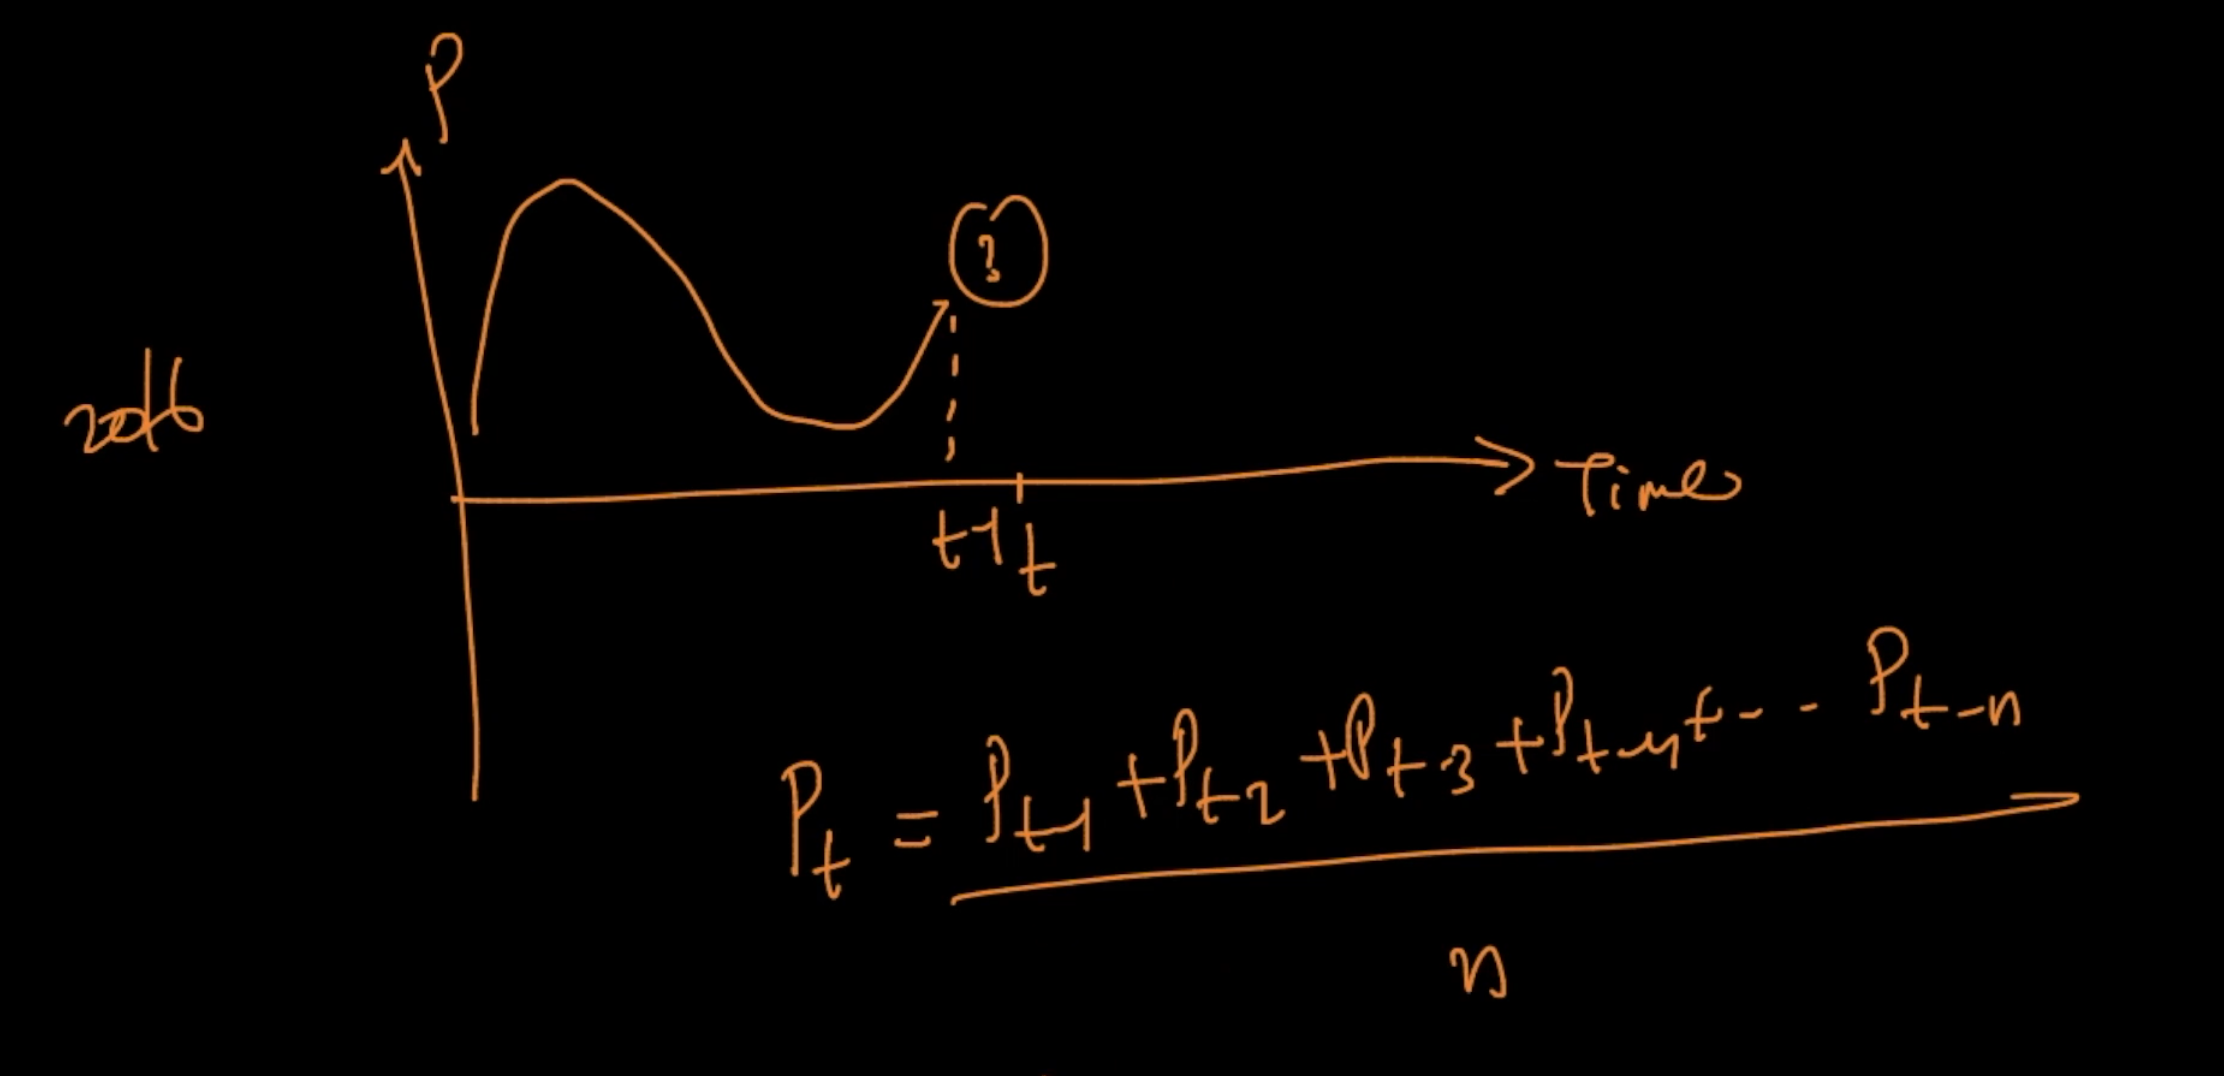 P
?
2016
Time
t-1 t
P_t = P_t-1 + P_t-2 + P_t-3 + P_t-4 + -- P_t-n
n